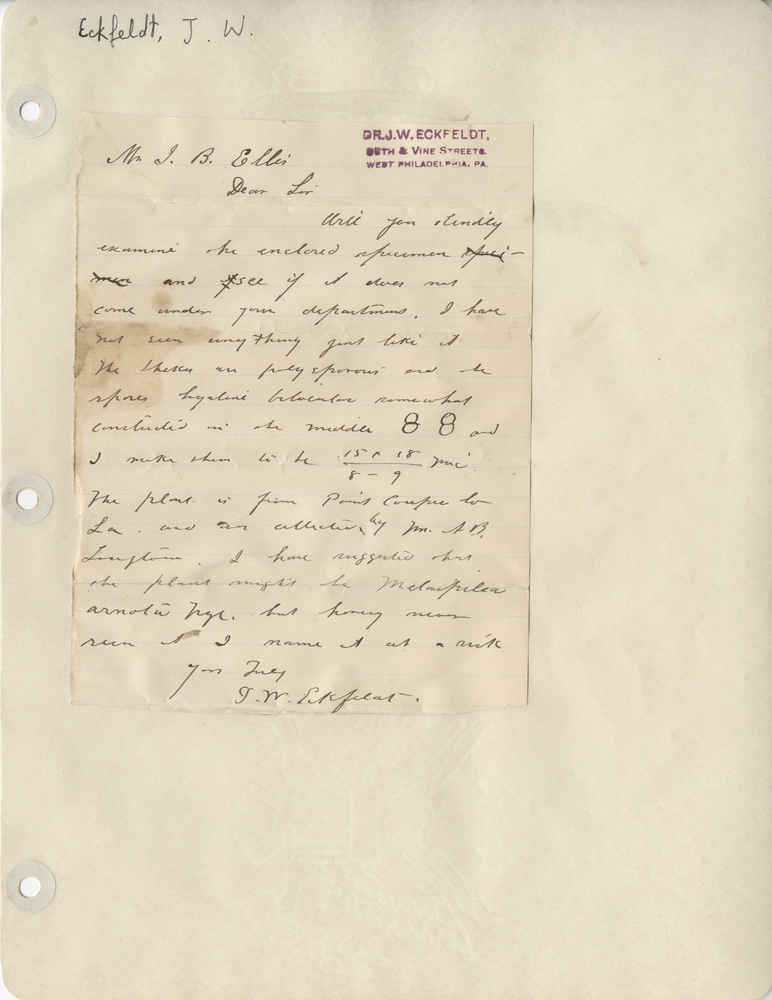 Eckfeldt, J. W.
DR. J. W. ECKFELDT,
& VINE STREETS.
WEST PHILADELPHIA, PA.
Mr J. B. Ellis
Dear Sir
Will you kindly
examine the enclosed specimen speci-
men and see if it does not
come under your department. I have
not seen anything just like it
The thekes are polysporous and the
spores hyaline bilocular somewhat
constricted in the middle 8 8 and
I make them to be 15 x 18 / 8 - 9 mic
The plant is from Point Coupee
La. and collection by Mr. A B.
Langlois. I have suggested that
the plant might be Melaspilea
arnota Nyl. but having never
seen it I name it at a risk
yours Truly
J. W. Eckfeldt.